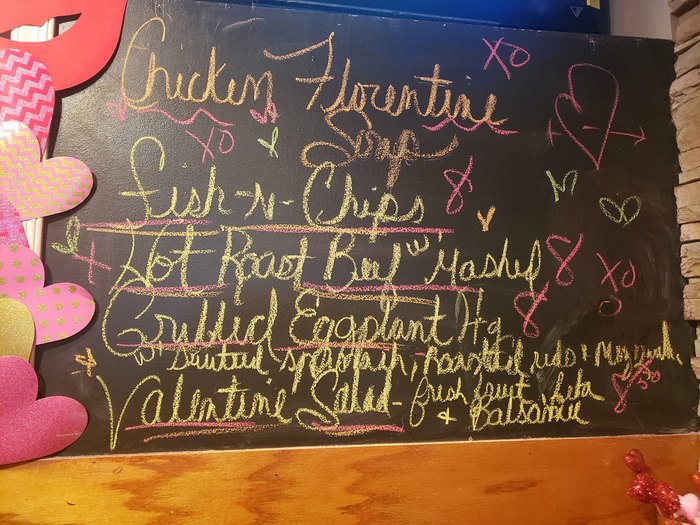 XO
Chicken Florentine
XO
Soup
Fish-N-Chips 8
Hot Roast Beef w mashed 8
XO
Grilled Eggplant Hg 8
w/ Sauteed spinach, roasted reds &
Valentine Salad - fresh fruit, feta
& Balsamic